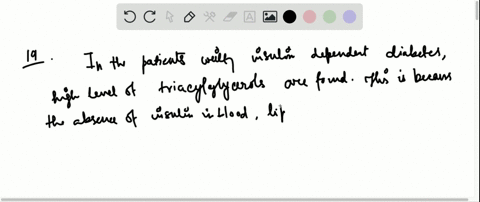 19. In the patients with insulin dependent diabetes,
high level of triacylglycerols are found. This is because
the absence of insulin in blood, lip